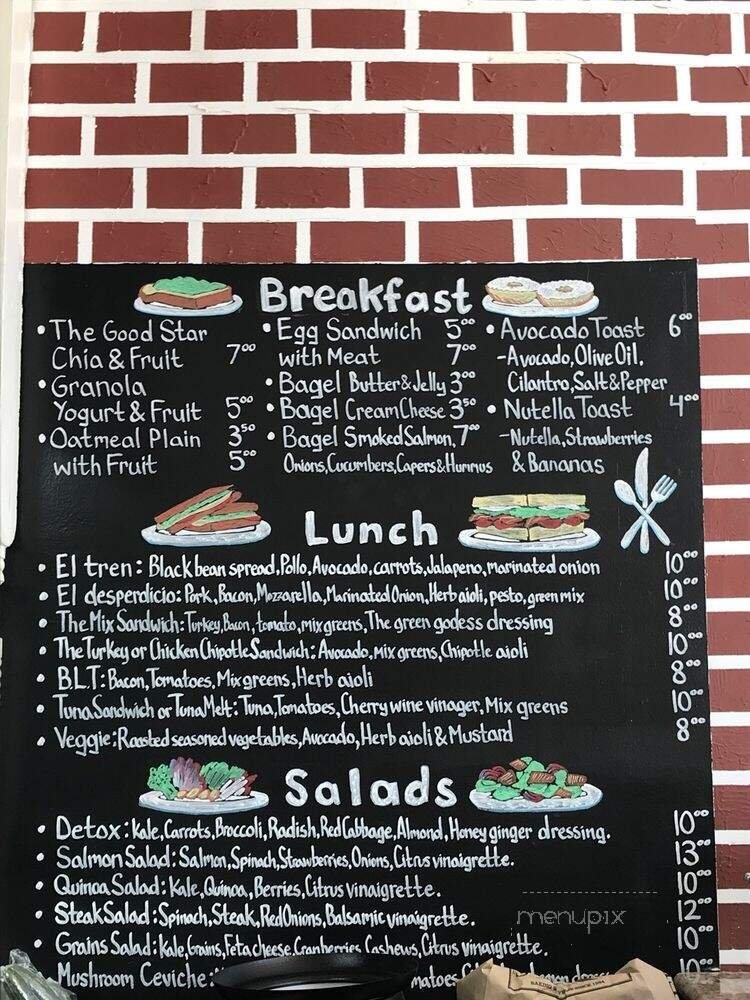 Breakfast
• The Good Star
Chia & Fruit 7⁰⁰
• Granola
Yogurt & Fruit 5⁰⁰
• Oatmeal Plain 3⁵⁰
with Fruit 5⁰⁰
• Egg Sandwich 5⁰⁰
with Meat 7⁰⁰
• Bagel Butter & Jelly 3⁰⁰
• Bagel Cream Cheese 3⁵⁰
• Bagel Smoked Salmon, 7⁰⁰
Onions, Cucumbers, Capers & Hummus
• Avocado Toast 6⁰⁰
- Avocado, Olive Oil,
Cilantro, Salt & Pepper
• Nutella Toast 4⁰⁰
- Nutella, Strawberries
& Bananas
Lunch
• El tren: Black bean spread, Pollo, Avocado, carrots, Jalapeno, marinated onion 10⁰⁰
• El desperdicio: Pork, Bacon, Mozzarella, Marinated Onion, Herb aioli, pesto, green mix 10⁰⁰
• The Mix Sandwich: Turkey, Bacon, tomato, mix greens, The green godess dressing 8⁰⁰
• The Turkey or Chicken Chipotle Sandwich: Avocado, mix greens, Chipotle aioli 10⁰⁰
• B.L.T: Bacon, Tomatoes, Mix greens, Herb aioli 8⁰⁰
• Tuna Sandwich or Tuna Melt: Tuna, Tomatoes, Cherry wine vinager, Mix greens 10⁰⁰
• Veggie: Roasted seasoned vegetables, Avocado, Herb aioli & Mustard 8⁰⁰
Salads
• Detox: Kale, Carrots, Broccoli, Radish, Red Cabbage, Almond, Honey ginger dressing. 10⁰⁰
• Salmon Salad: Salmon, Spinach, Strawberries, Onions, Citrus vinaigrette. 13⁰⁰
• Quinoa Salad: Kale, Quinoa, Berries, Citrus vinaigrette. 10⁰⁰
• Steak Salad: Spinach, Steak, Red Onions, Balsamic vinaigrette. 12⁰⁰
• Grains Salad: Kale, Grains, Feta cheese, Cranberries, Cashews, Citrus vinaigrette. 10⁰⁰
• Mushroom Ceviche: matoes 10⁰⁰
menupix